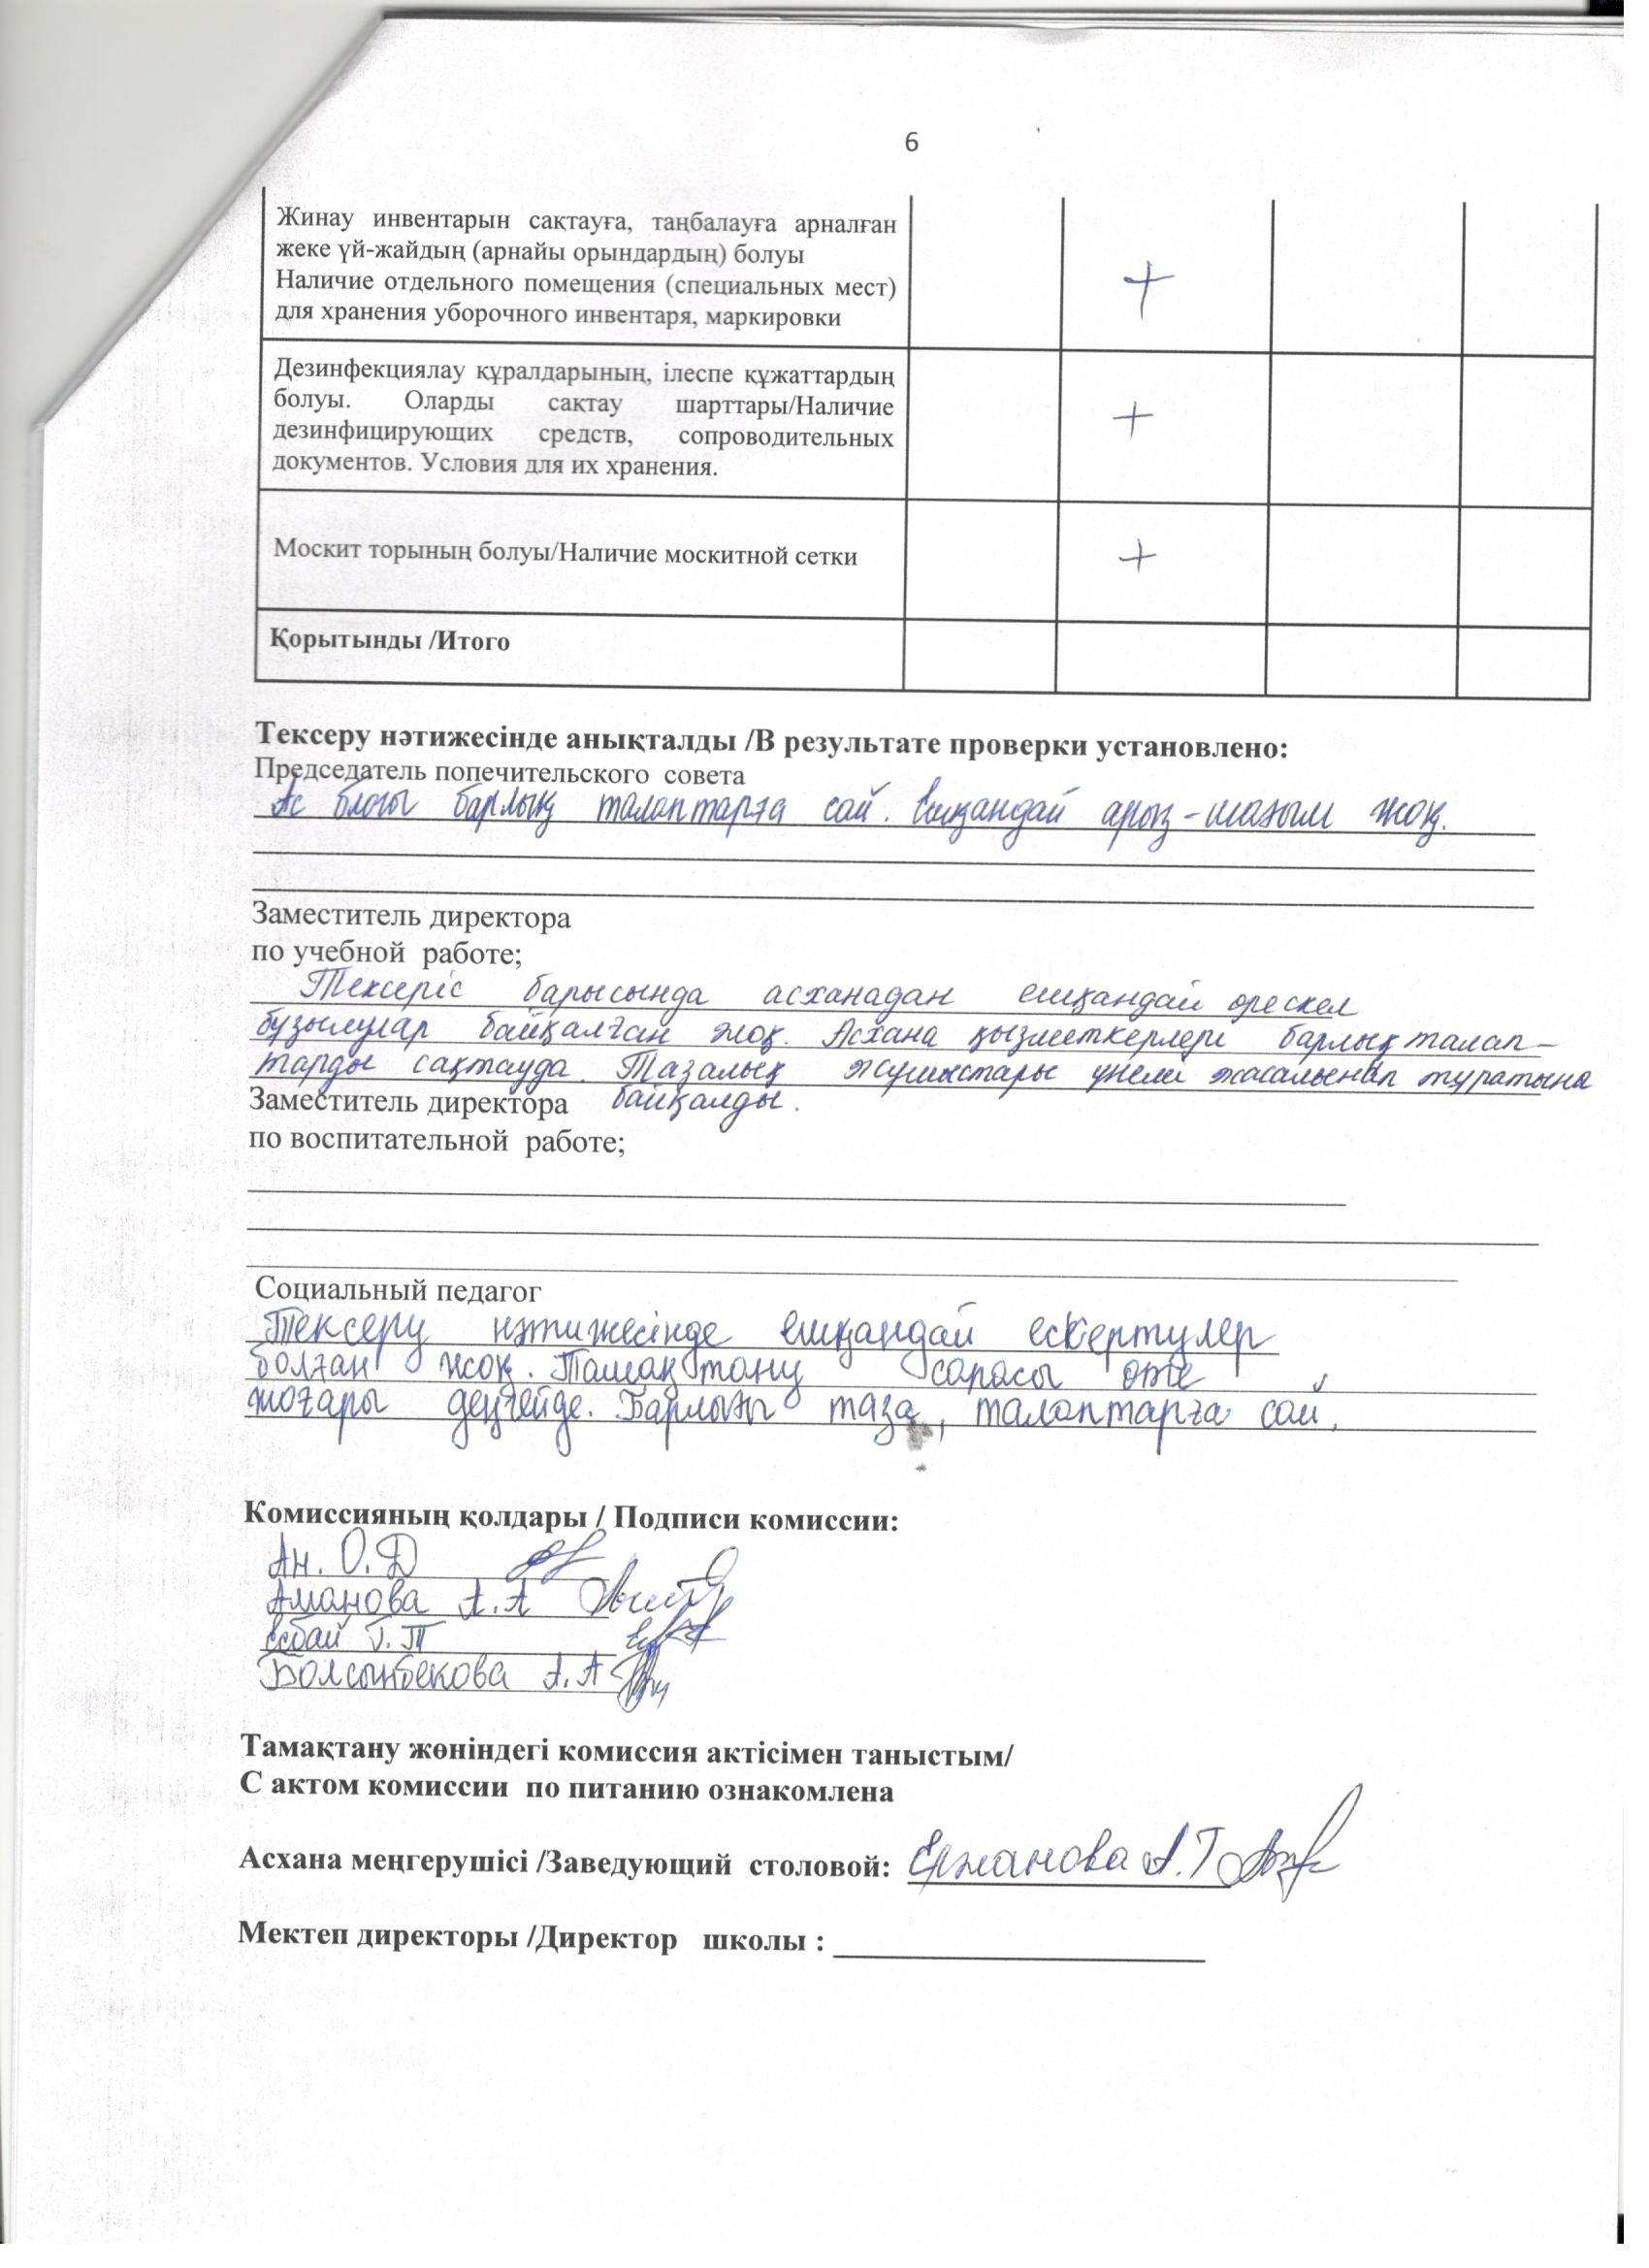 6
Жинау инвентарын сақтауға, таңбалауға арналған
жеке үй-жайдың (арнайы орындардың) болуы
Наличие отдельного помещения (специальных мест)
для хранения уборочного инвентаря, маркировки
+
Дезинфекциялау құралдарының, ілеспе құжаттардың
болуы. Оларды сақтау шарттары/Наличие
дезинфицирующих средств, сопроводительных
документов. Условия для их хранения.
+
Москит торының болуы/Наличие москитной сетки
+
Қорытынды /Итого
Тексеру нәтижесінде анықталды /В результате проверки установлено:
Председатель попечительского совета
Ас блогы барлық талаптарға сай. Ешқандай арыз-шағым жоқ.
Заместитель директора
по учебной работе;
Тексеріс барысында асханадан ешқандай өрескел
бұзылулар байқалған жоқ. Асхана қызметкерлері барлық талап-
тарды сақтауда. Тазалық жұмыстары үнемі жасалынып тұратыны
Заместитель директора байқалды.
по воспитательной работе;
Социальный педагог
Тексеру нәтижесінде ешқандай ескертулер
болған жоқ. Тамақтану сапасы өте
жоғары деңгейде. Барлығы таза, талаптарға сай.
Комиссияның қолдары / Подписи комиссии:
Ан. О.Д
Аманова А.А
Есбай Г.Т
Болсынбекова А.А
Тамақтану жөніндегі комиссия актісімен таныстым/
С актом комиссии по питанию ознакомлена
Асхана меңгерушісі /Заведующий столовой: Ержанова А.Г
Мектеп директоры /Директор школы :